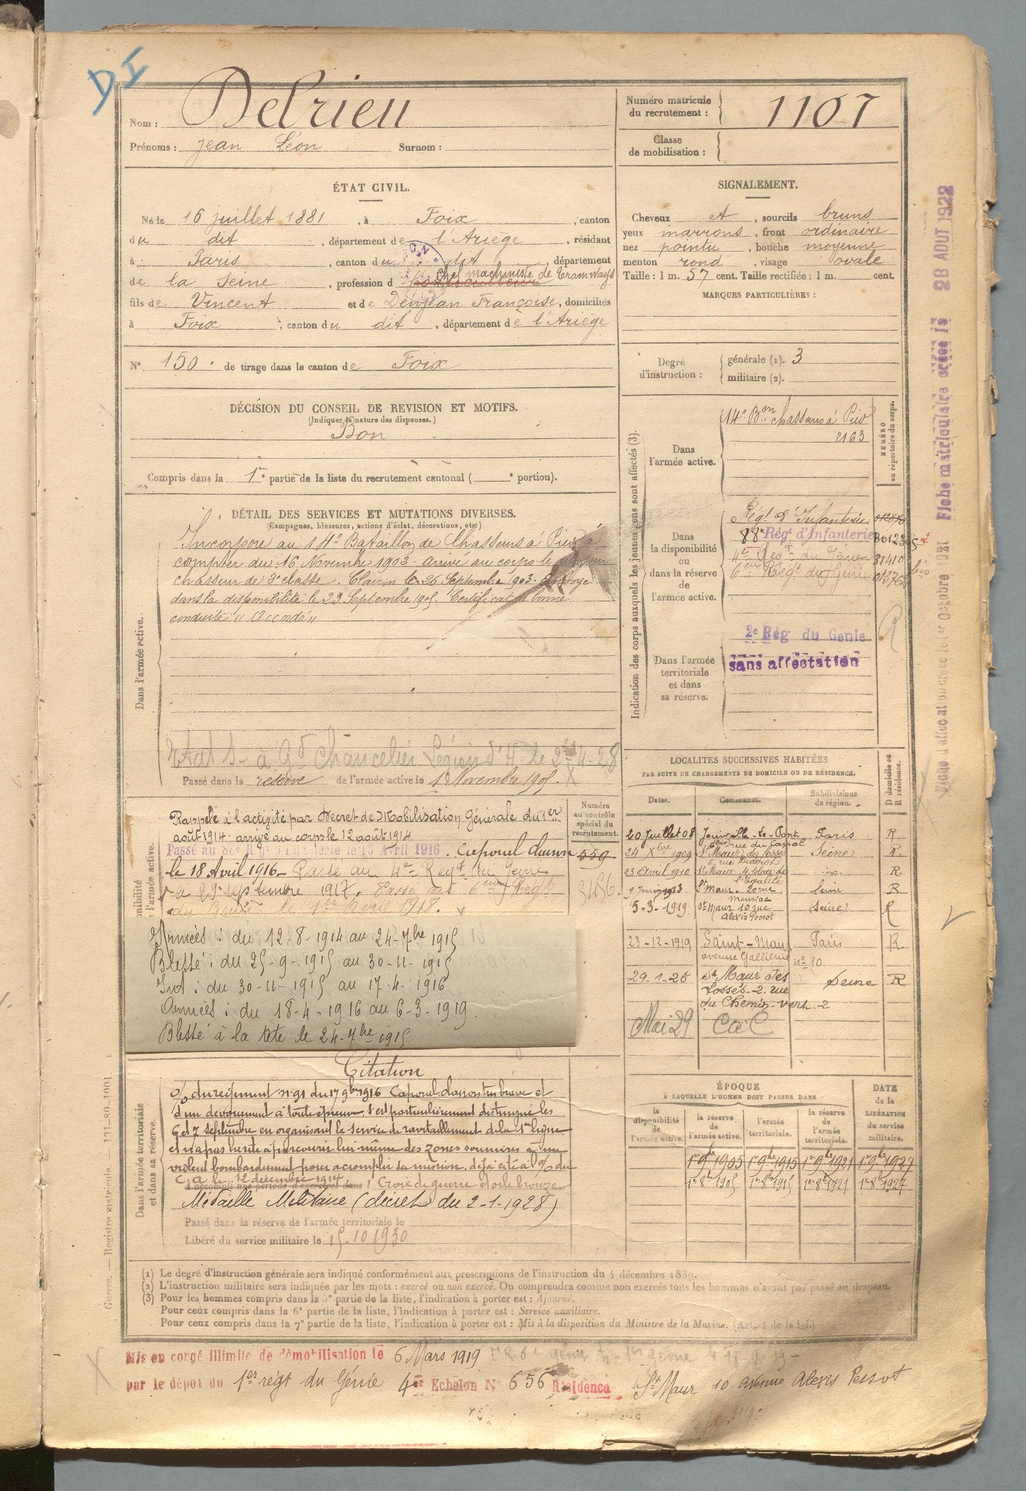 DI
Nom : Delrieu
Prénoms : Jean Léon Surnom :
Numéro matricule du recrutement : 1107
Classe de mobilisation :
ÉTAT CIVIL.
Né le 16 juillet 1881, à Foix, canton
du dit, département de l'Ariège, résidant
à Paris, canton du dit, département
de la Seine, profession de Chef machiniste de Tramways
fils de Vincent et de Dejean Françoise, domiciliés
à Foix, canton du dit, département de l'Ariège
N° 150 de tirage dans le canton de Foix
SIGNALEMENT.
Cheveux et, sourcils bruns
yeux marrons, front ordinaire
nez pointu, bouche moyenne
menton rond, visage ovale
Taille : 1 m. 57 cent. Taille rectifiée : 1 m. cent.
MARQUES PARTICULIÈRES :
Degré d'instruction : générale (1). 3
militaire (2).
DÉCISION DU CONSEIL DE REVISION ET MOTIFS.
(Indiquer la nature des dispenses.)
Bon
Compris dans la 1re partie de la liste du recrutement cantonal ( e portion).
DÉTAIL DES SERVICES ET MUTATIONS DIVERSES.
(Campagnes, blessures, actions d'éclat, décorations, etc.)
Dans l'armée active.
Incorporé au 14e Bataillon de Chasseurs à Pied à
compter du 16 Novembre 1903. Arrivé au corps le
chasseur de 2e classe. Clairon le 26 Septembre 1903.
dans la disponibilité le 23 Septembre 1905. Certificat de bonne
conduite "Accordé"
Etat S- à Gd Chancelier Légion d'H. le 2-4-28
Passé dans la réserve de l'armée active le 1er Novembre 1905.
Indication des corps auxquels les jeunes gens sont affectés (3).
NUMÉRO au répertoire du corps.
Dans l'armée active.
14e Bon Chasseurs à Pied
2163
Dans la disponibilité ou dans la réserve de l'armée active.
Régt d'Infanterie
88e Régt d'Infanterie
4e Régt du Génie 31410
6ème Régt du Génie
Dans l'armée territoriale et dans sa réserve.
2e Rég du Genie
sans affectation
R
Fiche matriculaire créée le 28 AOUT 1922
LOCALITÉS SUCCESSIVES HABITÉES
PAR SUITE DE CHANGEMENTS DE DOMICILE OU DE RÉSIDENCE.
Dates. Communes. Subdivisions de région. D domicile ou R résidence.
20 Juillet 08 Joinville-le-Pont Paris R
24 Xbre 1909 St Maur des Fossés Seine R
23 Avril 1910 St Maur R
1913 St Maur Seine R
5-3-1919 St Maur 10 rue Alexis Pessot (Seine) R
23-12-1919 Saint-Maur avenue Galliéni Paris R
29-1-26 St Maur des Fossés-2-rue du Chemin-vert-2 Seine R
Mai 29 CaC
Numéro au contrôle spécial du recrutement.
559
Rappelé à l'activité par Décret de Mobilisation Générale du 1er
août 1914 arrivé au corps le 12 août 1914
Caporal
le 18 Avril 1916. Passé au 4e Régt du Génie
le 29 septembre 1917. Passé au 6ème Régt
du Génie le 1er Avril 1918.
Armées : du 12-8-1914 au 24-7bre 1915
Blessé : du 25-9-1915 au 30-11-1915
Int : du 30-11-1915 au 17-4-1916
Armées : du 18-4-1916 au 6-3-1919.
Blessé à la tête le 24-7bre 1915
Dans l'armée territoriale et dans sa réserve.
Citation
O/ du régiment n° 91 du 17 9bre 1916 Caporal clairon très brave et
d'un dévouement à toute épreuve s'est particulièrement distingué les
6 et 7 septembre en organisant le service de ravitaillement de la 1re ligne
et n'a pas hésité à parcourir lui même des zones soumises à un
violent bombardement pour accomplir sa mission, déjà cité à l'O/ du
C.A. le 12 décembre 1914. Croix de guerre étoile bronze
Médaille Militaire (décret du 2-1-1928)
Passé dans la réserve de l'armée territoriale le
Libéré du service militaire le 15.10 1930
ÉPOQUE
À LAQUELLE L'HOMME DOIT PASSER DANS
DATE de la LIBÉRATION du service militaire.
la disponibilité de l'armée active. la réserve de l'armée active. l'armée territoriale. la réserve de l'armée territoriale.
1er 9bre 1905 1er 9bre 1915 1er 9bre 1921 1er 9bre 1927
1er 8bre 1905 1er 8bre 1915 1er 8bre 1921 1er 8bre 1927
(1) Le degré d'instruction générale sera indiqué conformément aux prescriptions de l'instruction du 4 décembre 1889.
(2) L'instruction militaire sera indiquée par les mots : exercé ou non exercé. On comprendra comme non exercés tous les hommes n'ayant pas passé au drapeau.
(3) Pour les hommes compris dans la 5e partie de la liste, l'indication à porter est : Ajourné.
Pour ceux compris dans la 6e partie de la liste, l'indication à porter est : Service auxiliaire.
Pour ceux compris dans la 7e partie de la liste, l'indication à porter est : Mis à la disposition du Ministre de la Marine.
Mis en congé illimité de démobilisation le 6 Mars 1919
par le dépôt du 1er régt du Génie 4er Echelon N° 656 Résidence St Maur 10 avenue Alexis Pessot